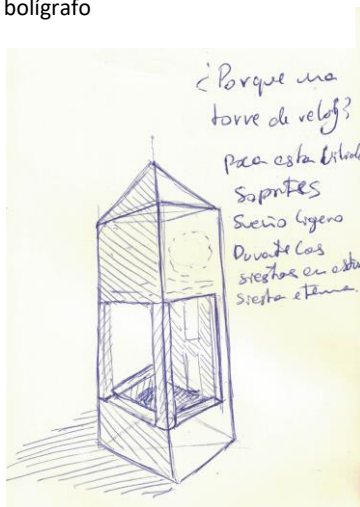 bolígrafo
¿Porque una
torre de reloj?
para esta
Soportes
Sueño ligero
Durante las
siestas en esta
siesta eterna.